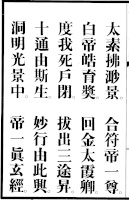 太素拂渺景　合符帝一尊
白帝皓育奬　回金太霞卿
度我死戶閉　拔出三途昇
十通由斯生　妙行由此興
洞明光景中　帝一眞玄經